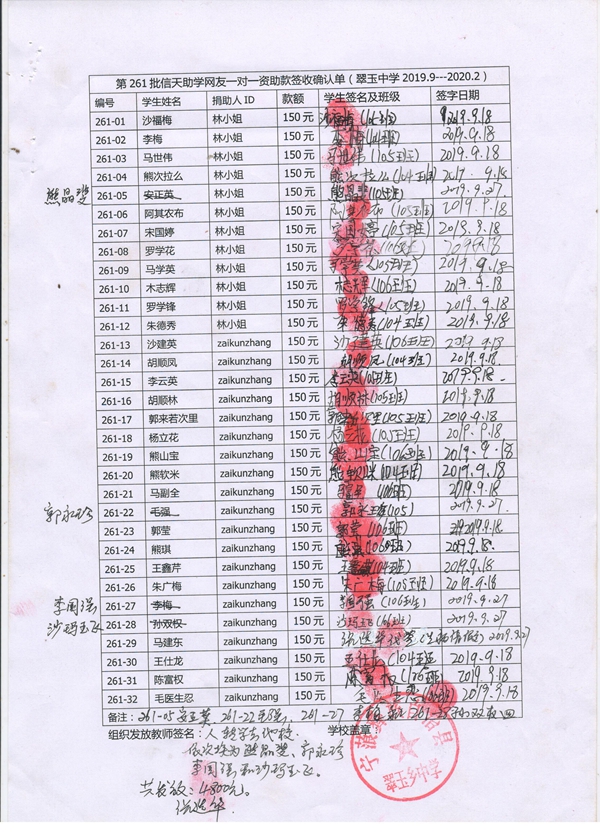 第261批信天助学网友一对一资助款签收确认单（翠玉中学2019.9---2020.2）
编号 学生姓名 捐助人ID 款额 学生签名及班级 签字日期
261-01 沙福梅 林小姐 150元 沙福梅(106班) 2019.9.18
261-02 李梅 林小姐 150元 李梅(104班) 2019.9.18
261-03 马世伟 林小姐 150元 马世伟(105班) 2019.9.18
熊晶莹 261-04 熊次拉么 林小姐 150元 熊次拉么(104班) 2019.9.18
261-05 安正英 林小姐 150元 熊晶莹(105班) 2019.9.27
261-06 阿其农布 林小姐 150元 阿其农布(105班) 2019.9.18
261-07 宋国婷 林小姐 150元 宋国婷(105班) 2019.9.18
261-08 罗学花 林小姐 150元 罗学花(106班) 2019.9.18
261-09 马学英 林小姐 150元 马学英(105班) 2019.9.18
261-10 木志辉 林小姐 150元 木志辉(106班) 2019.9.18
261-11 罗学锋 林小姐 150元 罗学锋(105班) 2019.9.18
261-12 朱德秀 林小姐 150元 朱德秀(104班) 2019.9.18
261-13 沙建英 zaikunzhang 150元 沙建英(106班) 2019.9.18
261-14 胡顺凤 zaikunzhang 150元 胡顺凤(104班) 2019.9.18
261-15 李云英 zaikunzhang 150元 李云英(105班) 2019.9.18
261-16 胡顺林 zaikunzhang 150元 胡顺林(105班) 2019.9.18
261-17 郭来若次里 zaikunzhang 150元 郭来若次里(105班) 2019.9.18
261-18 杨立花 zaikunzhang 150元 杨立花(105班) 2019.9.18
261-19 熊山宝 zaikunzhang 150元 熊山宝(106班) 2019.9.18
261-20 熊软米 zaikunzhang 150元 熊软米(104班) 2019.9.18
261-21 马副全 zaikunzhang 150元 (106班) 2019.9.18
郭永珍 261-22 毛强 zaikunzhang 150元 郭永珍(105) 2019.9.27
261-23 郭莹 zaikunzhang 150元 郭莹(106班) 2019.9.18
261-24 熊琪 zaikunzhang 150元 熊琪(106班) 2019.9.18
261-25 王鑫芹 zaikunzhang 150元 王鑫芹(104班) 2019.9.18
261-26 朱广梅 zaikunzhang 150元 朱广梅(105班) 2019.9.18
李国强 261-27 李梅 zaikunzhang 150元 李国强(106班) 2019.9.27
沙玛玉飞 261-28 孙双权 zaikunzhang 150元 沙玛玉飞(106班) 2019.9.27
261-29 马建东 zaikunzhang 150元 2019.9.27
261-30 王仕龙 zaikunzhang 150元 王仕龙(104班) 2019.9.18
261-31 陈富权 zaikunzhang 150元 陈富权(106班) 2019.9.18
261-32 毛医生忍 zaikunzhang 150元 2019.9.18
备注：261-05安正英，261-22毛强，261-27李梅和261-28孙双权四
组织发放教师签名：人转学或 学校盖章：
依次换为熊晶莹、郭永珍
李国强和沙玛玉飞。
共发放：4800元。
翠玉乡中学